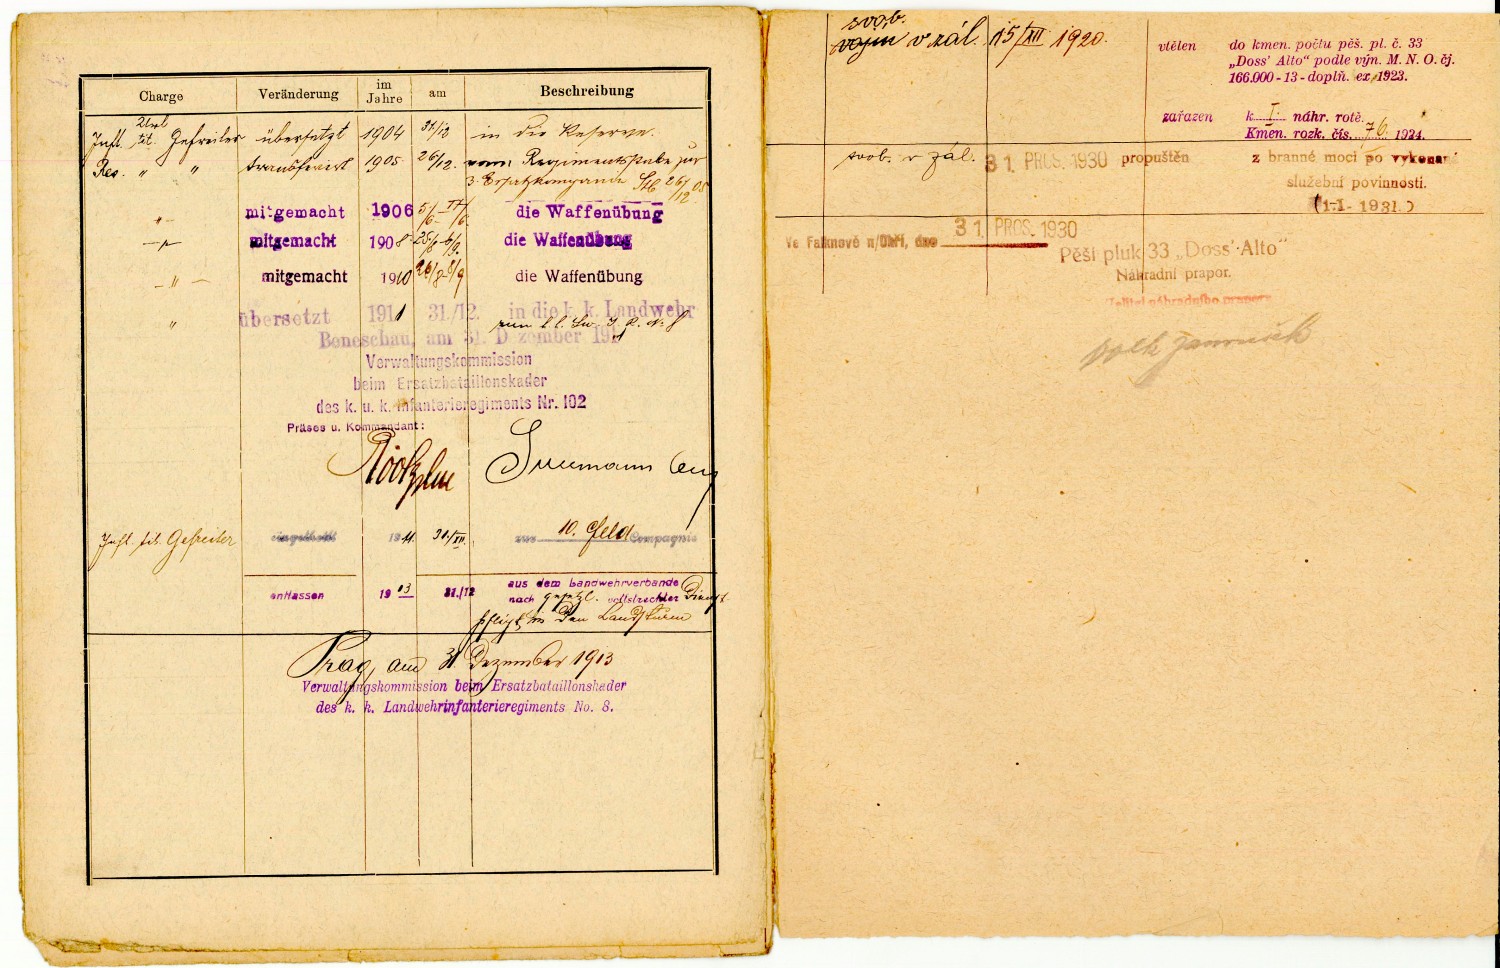 Charge Veränderung im Jahre am Beschreibung
Inft. tit. Gefreiter übersetzt 1904 31/12 in die Reserve.
Res. " " transferirt 1905 26/12. vom Regimentsstabe zur
3. Ersatzkompanie 26/12 05
" mitgemacht 1906 die Waffenübung
" mitgemacht 1908 die Waffenübung
" mitgemacht 1910 26/8 8/9 die Waffenübung
" übersetzt 1911 31./12. in die k. k. Landwehr
zum J. R. No 8
Beneschau, am 31. Dezember 191
Verwaltungskommission
beim Ersatzbataillonskader
des k. u. k. Infanterieregiments Nr. 102
Präses u. Kommandant:
Inft. tit. Gefreiter eingeteilt 1911 31./XII. zur 10. Feld Compagnie
entlassen 1913 31./12 aus dem Landwehrverbande
nach gesetzl. vollstreckter Dienst
pflicht in den Landsturm
Prag, am 31. Dezember 1913
Verwaltungskommission beim Ersatzbataillonskader
des k. k. Landwehrinfanterieregiments No. 8.
svob.
vojín v zál. 15/XII 1920. vtělen do kmen. počtu pěš. pl. č. 33
„Doss' Alto" podle výn. M. N. O. čj.
166.000-13-doplň. ex 1923.
zařazen k I. náhr. rotě.
Kmen. rozk. čís. 76 1924.
svob. v zál. 31. PROS. 1930 propuštěn z branné moci po vykonání
služební povinnosti.
(1-I-1931.)
Ve Falknově n/Ohří, dne 31. PROS. 1930
Pěší pluk 33 „Doss' Alto"
Náhradní prapor.
Velitel náhradního praporu